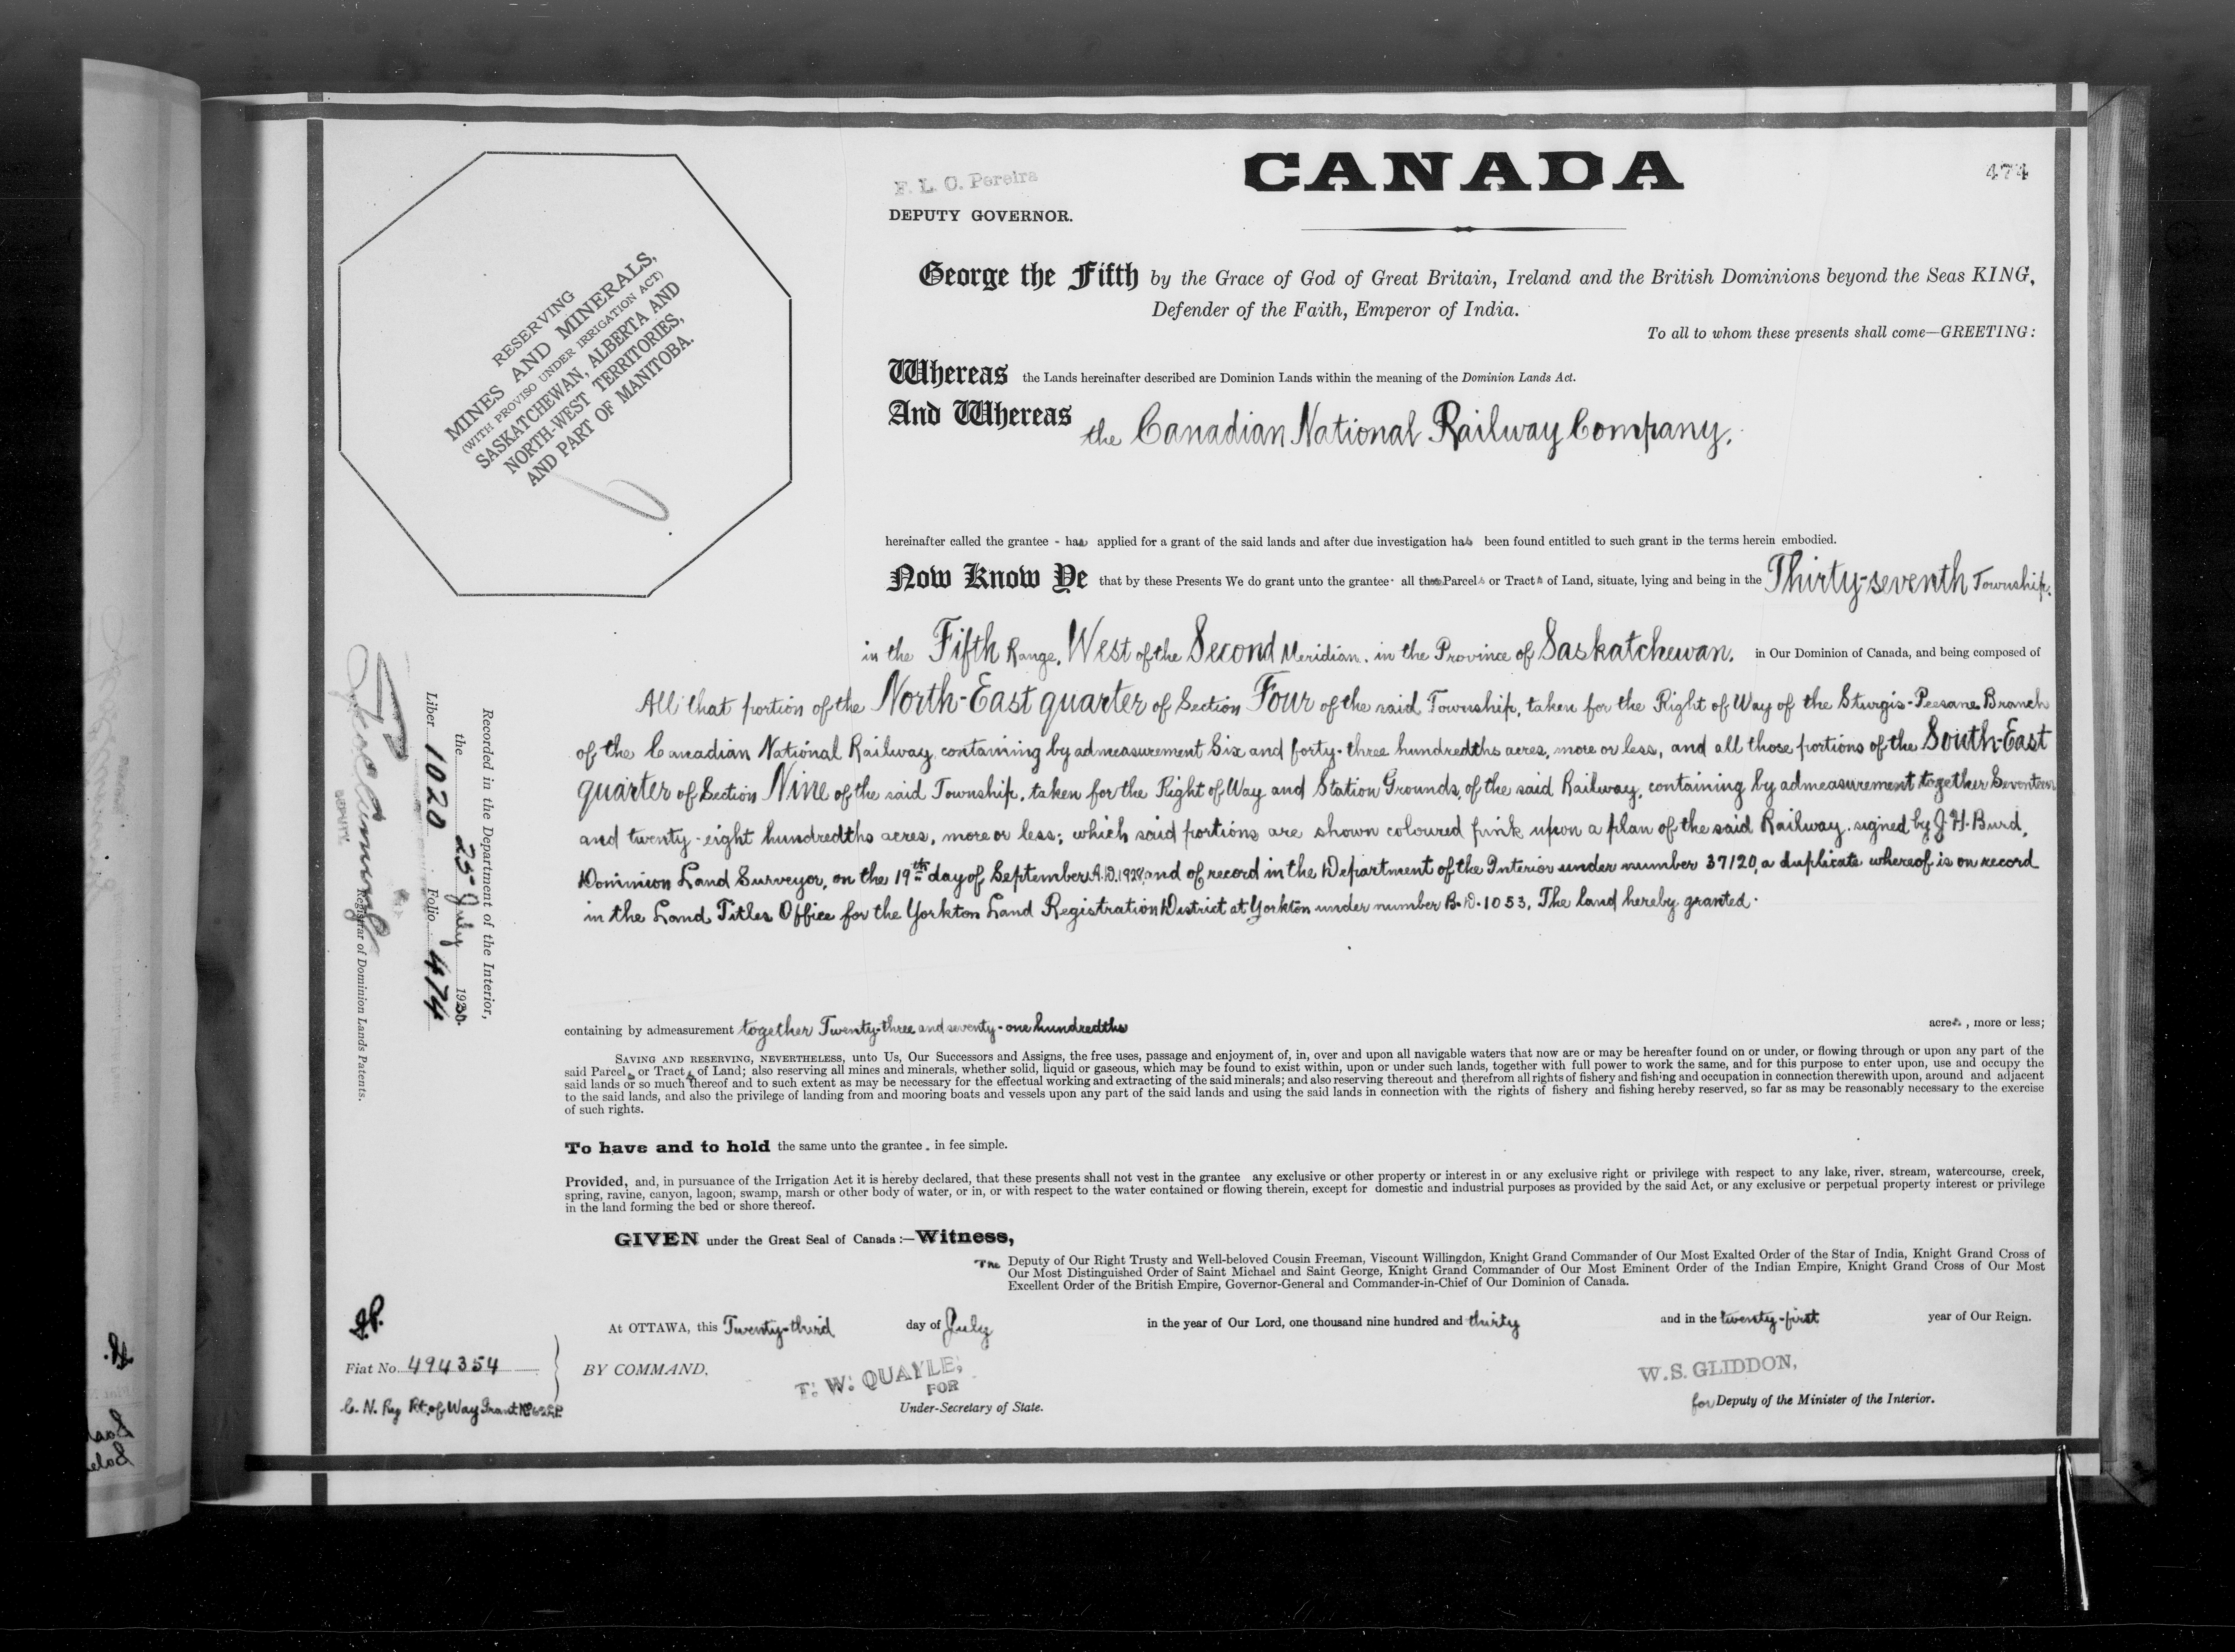 CANADA
474
F. L. C. Pereira
DEPUTY GOVERNOR.
RESERVING
MINES AND MINERALS,
(WITH PROVISO UNDER IRRIGATION ACT)
SASKATCHEWAN, ALBERTA AND
NORTH-WEST TERRITORIES,
AND PART OF MANITOBA.
George the Fifth by the Grace of God of Great Britain, Ireland and the British Dominions beyond the Seas KING,
Defender of the Faith, Emperor of India.
To all to whom these presents shall come—GREETING:
Whereas the Lands hereinafter described are Dominion Lands within the meaning of the Dominion Lands Act.
And Whereas the Canadian National Railway Company,
hereinafter called the grantee - has applied for a grant of the said lands and after due investigation has been found entitled to such grant in the terms herein embodied.
Now Know Ye that by these Presents We do grant unto the grantee all those Parcels or Tracts of Land, situate, lying and being in the Thirty-seventh Township,
in the Fifth Range, West of the Second Meridian, in the Province of Saskatchewan, in Our Dominion of Canada, and being composed of
All that portion of the North-East quarter of Section Four of the said Township, taken for the Right of Way of the Sturgis-Peesane Branch
of the Canadian National Railway, containing by admeasurement Six and forty-three hundredths acres, more or less, and all those portions of the South-East
quarter of Section Nine of the said Township, taken for the Right of Way and Station Grounds, of the said Railway, containing by admeasurement together Seventeen
and twenty-eight hundredths acres, more or less; which said portions are shown coloured pink upon a plan of the said Railway, signed by J. H. Burd,
Dominion Land Surveyor, on the 19th day of September, A.D. and of record in the Department of the Interior under number 37120, a duplicate whereof is on record
in the Land Titles Office for the Yorkton Land Registration District at Yorkton under number B.D. 1053. The land hereby granted
containing by admeasurement together Twenty-three and seventy-one hundredths acres, more or less;
SAVING AND RESERVING, NEVERTHELESS, unto Us, Our Successors and Assigns, the free uses, passage and enjoyment of, in, over and upon all navigable waters that now are or may be hereafter found on or under, or flowing through or upon any part of the
said Parcels or Tracts of Land; also reserving all mines and minerals, whether solid, liquid or gaseous, which may be found to exist within, upon or under such lands, together with full power to work the same, and for this purpose to enter upon, use and occupy the
said lands or so much thereof and to such extent as may be necessary for the effectual working and extracting of the said minerals; and also reserving thereout and therefrom all rights of fishery and fishing and occupation in connection therewith upon, around and adjacent
to the said lands, and also the privilege of landing from and mooring boats and vessels upon any part of the said lands and using the said lands in connection with the rights of fishery and fishing hereby reserved, so far as may be reasonably necessary to the exercise
of such rights.
To have and to hold the same unto the grantee, in fee simple.
Provided, and, in pursuance of the Irrigation Act it is hereby declared, that these presents shall not vest in the grantee any exclusive or other property or interest in or any exclusive right or privilege with respect to any lake, river, stream, watercourse, creek,
spring, ravine, canyon, lagoon, swamp, marsh or other body of water, or in, or with respect to the water contained or flowing therein, except for domestic and industrial purposes as provided by the said Act, or any exclusive or perpetual property interest or privilege
in the land forming the bed or shore thereof.
GIVEN under the Great Seal of Canada:—Witness,
The Deputy of Our Right Trusty and Well-beloved Cousin Freeman, Viscount Willingdon, Knight Grand Commander of Our Most Exalted Order of the Star of India, Knight Grand Cross of
Our Most Distinguished Order of Saint Michael and Saint George, Knight Grand Commander of Our Most Eminent Order of the Indian Empire, Knight Grand Cross of Our Most
Excellent Order of the British Empire, Governor-General and Commander-in-Chief of Our Dominion of Canada.
At OTTAWA, this Twenty-third day of July in the year of Our Lord, one thousand nine hundred and thirty and in the twenty-first year of Our Reign.
BY COMMAND,
T. W. QUAYLE,
FOR
Under-Secretary of State.
W. S. GLIDDON,
for Deputy of the Minister of the Interior.
Fiat No. 494354
C. N. Ry Rt. of Way Grant No
Recorded in the Department of the Interior,
the 25 July 1930.
Liber 1020 Folio 474
DEPUTY Registrar of Dominion Lands Patents.